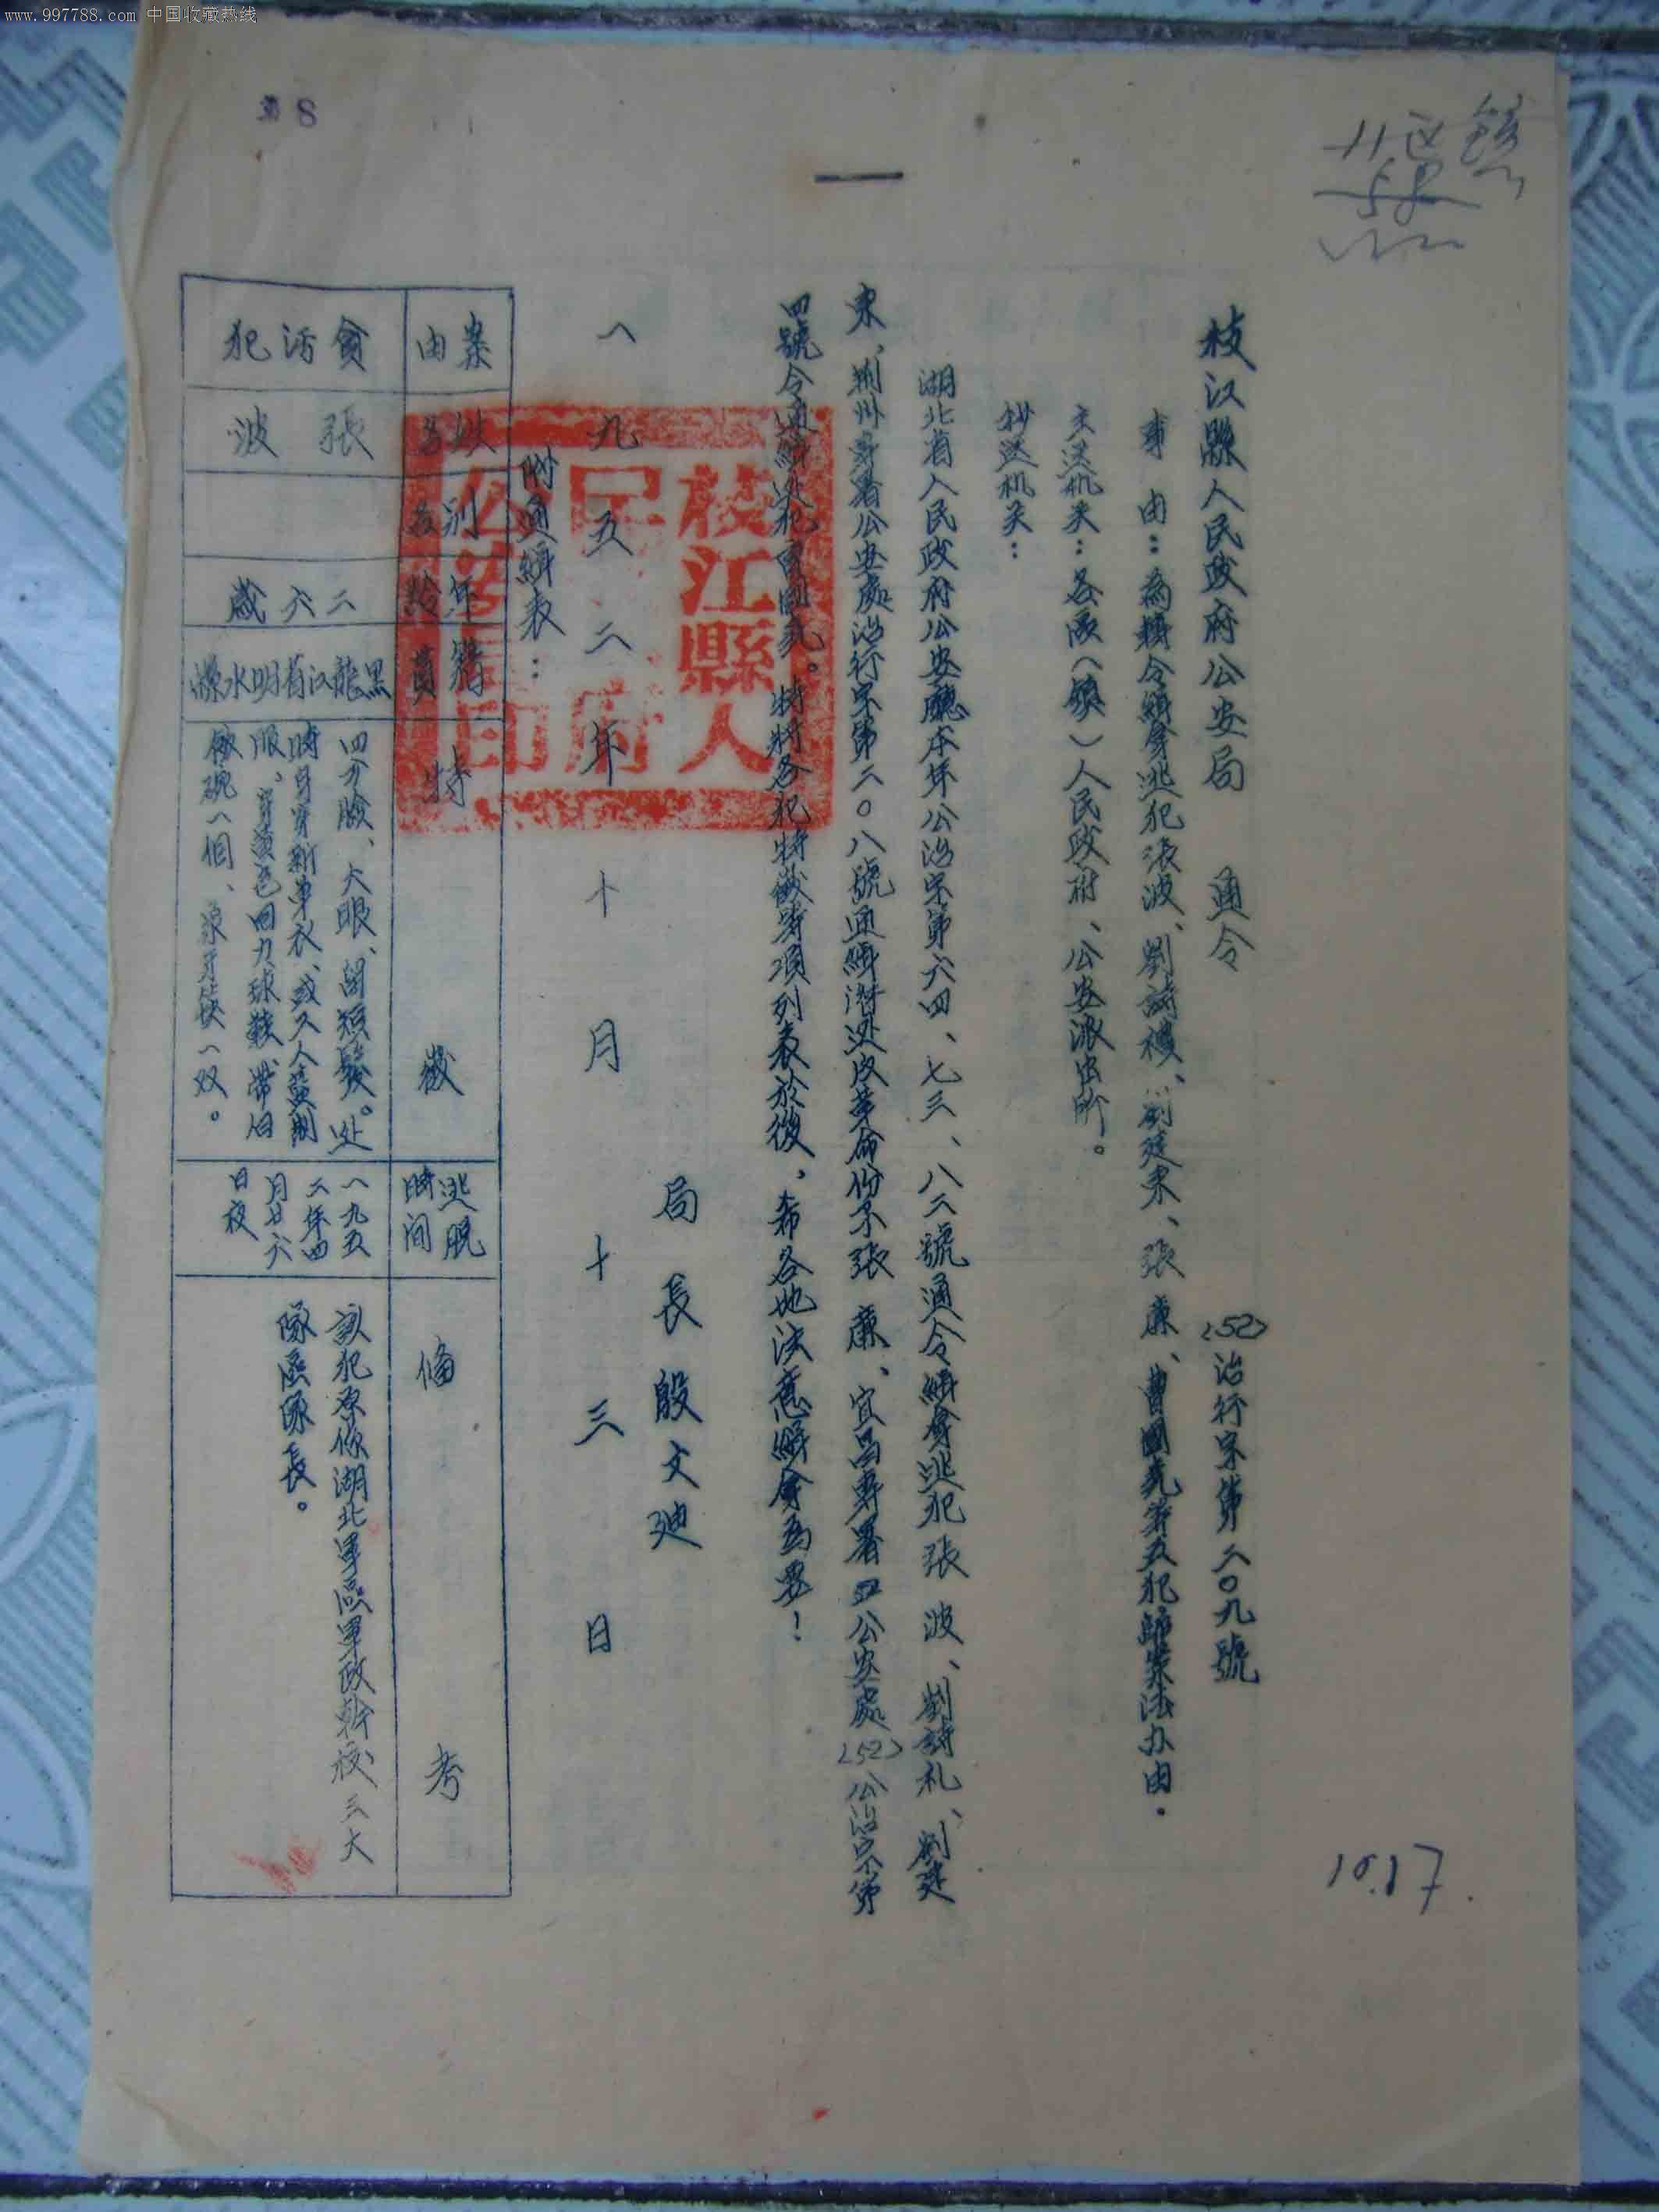 www.997788.com 中国收藏热线
第8
一
枝江縣人民政府公安局 通令
<52>治行字第二0九號
事由：為轉令緝拿逃犯張波、劉詩禮、劉建東、張廉、曹國堯等五犯歸案法办由.
主送机关：各區(鎮)人民政府、公安派出所。
抄送机关：
湖北省人民政府公安廳本年公治字第六四、七三、八二號通令緝拿逃犯張波、劉詩礼、劉建
東、荊州專署公安處治行字第二0八號通緝潛逃反革命份子張廉、宜昌專署公安處<52>公治字第
四號令通緝逃犯曹國堯。特將各犯特徵等項列表於後，希各地注意緝拿為要！
局長殷文廸
一九五二年十月十三日
附通緝表：
枝江縣人民政府公安局印
案由
姓名
別名
年齡
籍貫
特徵
逃脫時间
備考
貪污犯
張波
二六歲
黑龍江省明水縣
四方臉、大眼、留短髮。逃
時身穿新單衣、或又人藍制
服、穿黄色回力球鞋、帶白
一個、象牙筷一双。
一九五
二年四
月廿六
日夜
該犯原係湖北軍區軍政幹校三大
隊區隊長。
10.17.